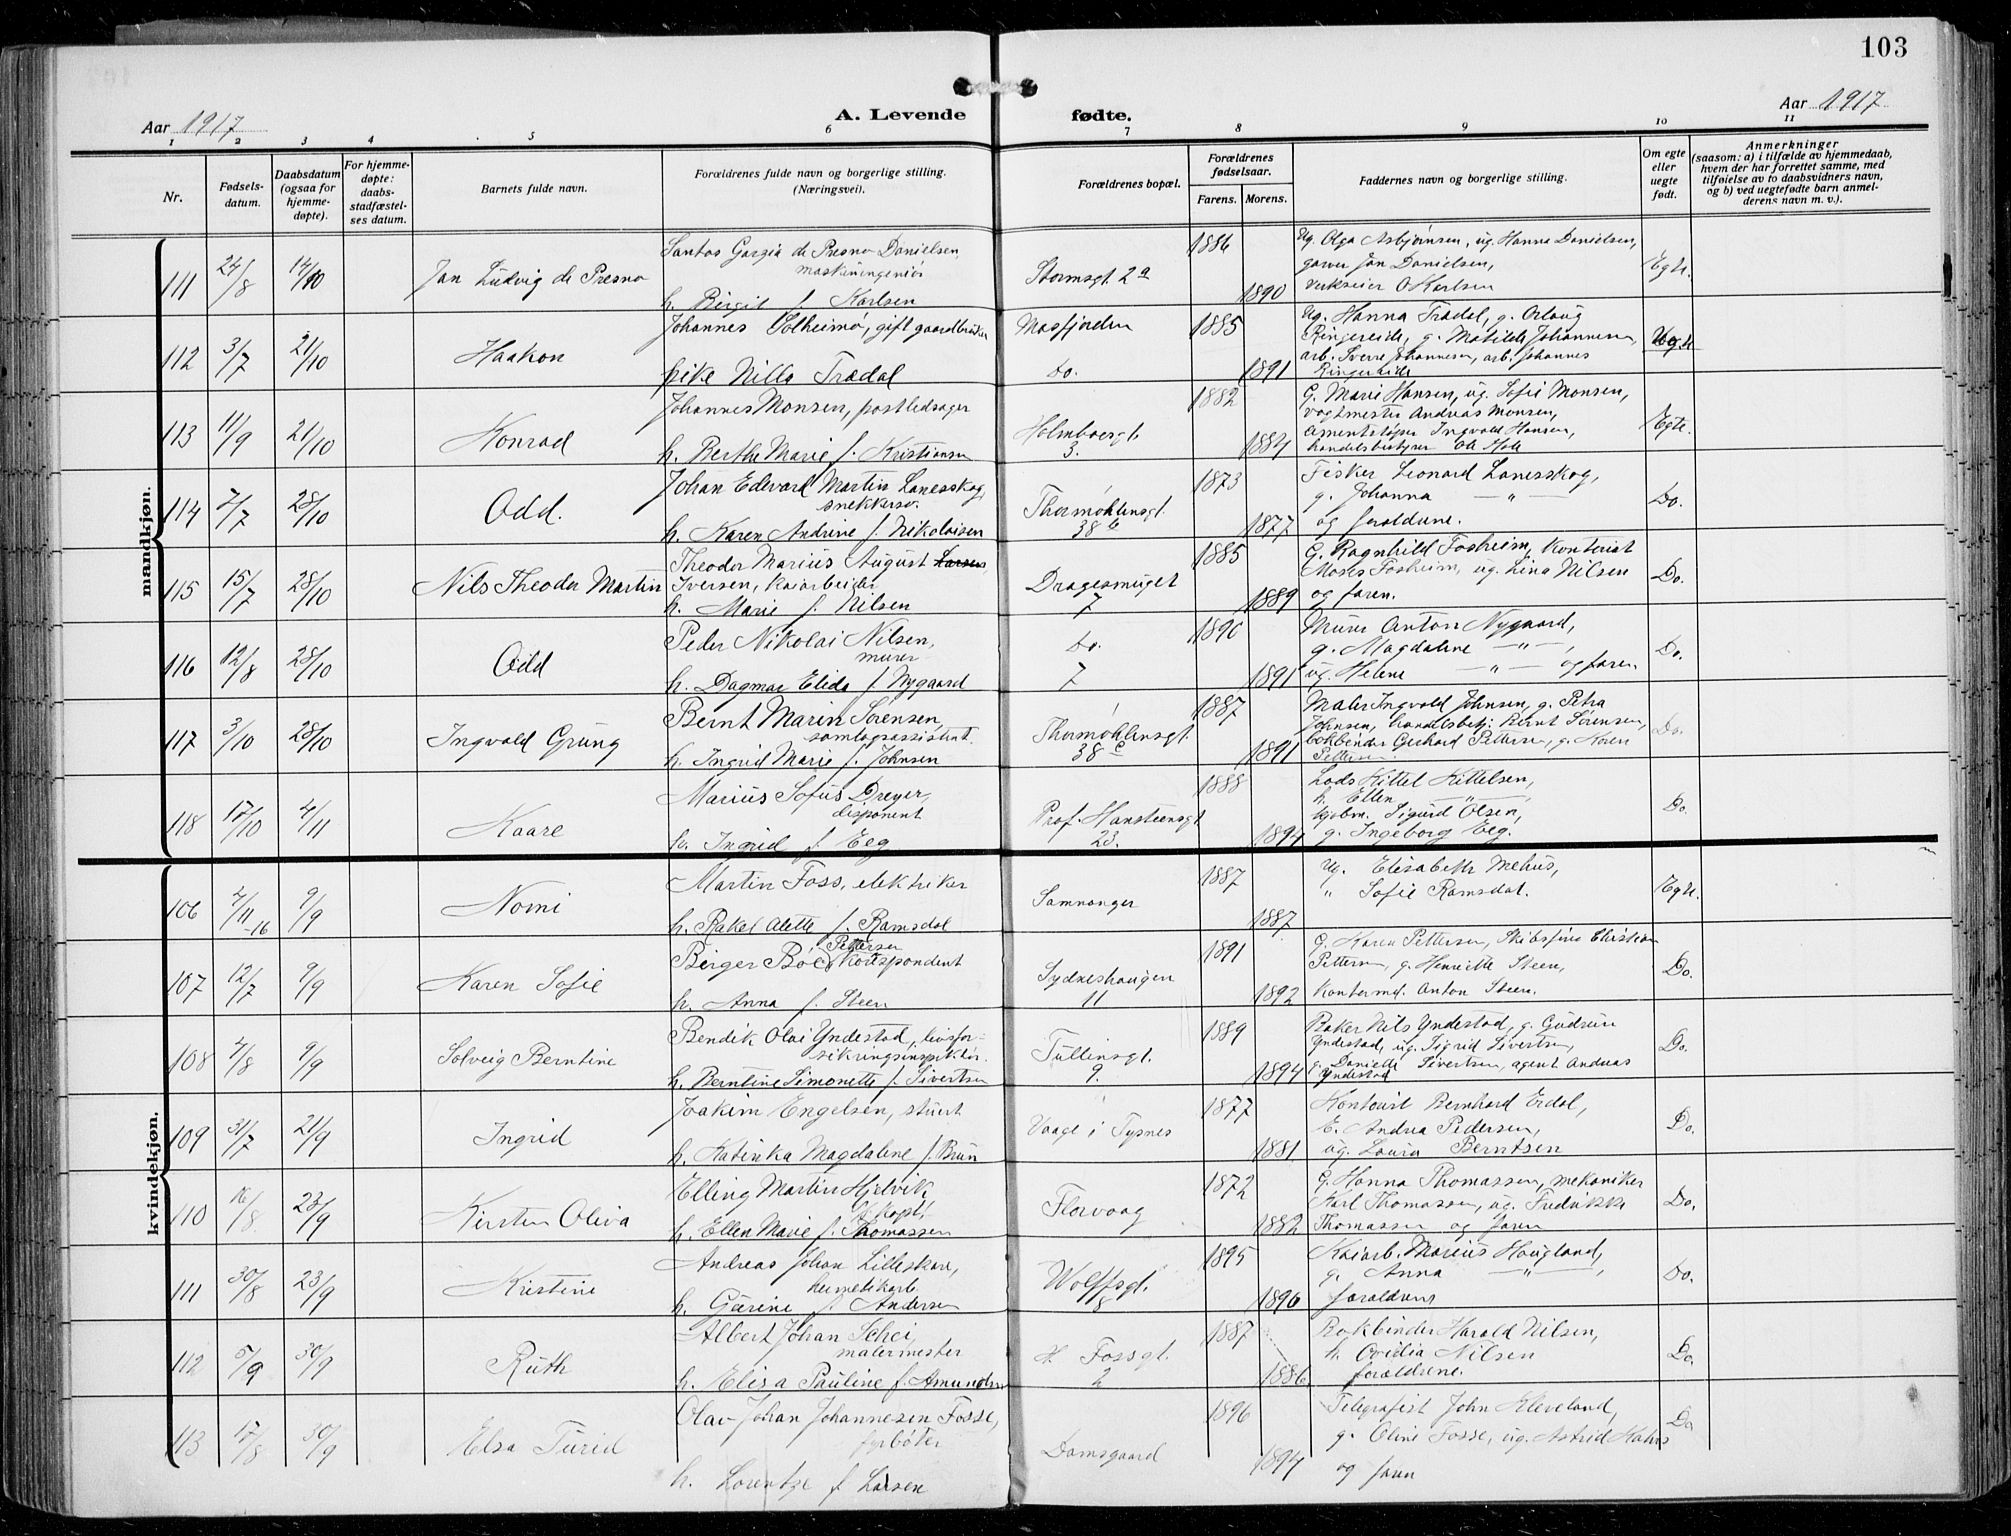 103
Aar 1917
A. Levende
fødte.
Aar 1917
1 2 3 4 5 6 7 8 9 10 11
Nr.
Fødsels-
datum.
Daabsdatum
(ogsaa for
hjemme-
døpte).
For hjemme-
døpte:
daabs-
stadfæstel-
ses datum.
Barnets fulde navn.
Forældrenes fulde navn og borgerlige stilling.
(Næringsvei).
Forældrenes bopæl.
Forældrenes
fødselsaar.
Farens. Morens.
Faddernes navn og borgerlige stilling.
Om egte
eller
uegte
født.
Anmerkninger
(saasom: a) i tilfælde av hjemmedaab,
hvem der har forrettet samme, med
tilføielse av to daabsvidners navn,
og b) ved uegtefødte barn anmel-
derens navn m. v.).
mandkjøn.
111 24/8 14/10 Jan Ludvig de Presno
Santos Gargia de Presno Danielsen,
maskiningeniør
h. Birgit f. Karlsen
Stormsgt 2a
1886
1890
Ug. Olga Asbjørnsen, ug. Hanna Danielsen,
garver Jan Danielsen,
verkseier O Karlsen
Egte.
112 3/7 21/10 Haakon
Johannes Solheimø, gift gaardbruker
pike Nilla Trædal
Masfjorden
do.
1885
1891
Ug. Hanna Trædal, g. Orlaug
Ringereide, g. Matilde Johannesen,
arb. Sverre Johannesen, arb. Johannes
Ringereide
Uegte
113 11/9 21/10 Konrad
Johannes Monsen, postledsager
h. Berthe Marie f. Kristiansen
Holmboesgt.
3.
1882
1884
G. Marie Hansen, ug. Sofie Monsen,
vogtmester Andreas Monsen,
cementstøper Ingvald Hansen,
handelsbestyrer Ole Hole
Egte.
114 7/7 28/10 Odd.
Johan Edevard Martin Lanesskog,
snekkersv.
h. Karen Andrine f. Nikolaisen
Thormøhlensgt.
38 b
1873
1877
Fisker Leonard Lanesskog,
g. Johanna — " —
og forældrene.
Do.
115 15/7 28/10 Nils Theodor Martin
Theodor Marius August Larsen,
Iversen, kaiarbeider
h. Marie f. Nilsen
Dragesmuget
7
1885
1889
G. Ragnhild Fosheim, kontorist
Moses Fosheim, ug. Lina Nilsen
og faren.
Do.
116 12/8 28/10 Odd
Peder Nikolai Nilsen,
murer
h. Dagmar Elida f. Nygaard
Do.
7
1890
1891
Murer Anton Nygaard,
g. Magdalene — " —,
ug. Helene — " — og faren.
Do.
117 3/10 28/10 Ingvald Grung
Bernt Marin Sørensen,
samlagsassistent.
h. Ingrid Marie f. Johnsen
Thormøhlensgt.
38 c
1887
1891
Maler Ingvald Johnsen, g. Petra
Johnsen, handelsbetj. Bernt Sørensen,
bokbinder Gerhard Pettersen, g. Karen
Pettersen.
Do.
118 17/10 4/11 Kaare
Marius Sofus Dreyer,
disponent
h. Ingrid f. Eeg
Prof. Hansteensgt
23.
1888
1894
Lods Kittel Kittelsen,
h. Ellen — " —,
kjøbm. Sigurd Olsen,
g. Ingeborg Eeg.
Do.
kvindekjøn.
106 7/11-16 9/9 Nomi
Martin Foss, elektriker
h. Rakel Alette f. Ramsdal
Samnanger
1887
1887
Ug. Elisabeth Mehus,
" Sofie Ramsdal.
Egte.
107 12/7 9/9 Karen Sofie
Pettersen
Birger Böe, korrespondent
h. Anna f. Steen
Sydneshaugen
11
1891
1892
G. Karen Pettersen, skibsfører Christian
Pettersen, g. Henriette Steen,
kontormd. Anton Steen.
Do.
108 7/8 9/9 Solveig Berntine
Bendik Olai Yndestad, livsfor-
sikringsinspektør.
h. Berntine Simonette f. Sivertsen
Tullinsgt.
9.
1889
1894
Baker Nils Yndestad, g. Gudrun
Yndestad, ug. Sigrid Sivertsen,
g. Danielle Sivertsen, agent Andreas
Yndestad
Do.
109 31/7 21/9 Ingrid
Joakim Engelsen, stuert
h. Katinka Magdalene f. Brun
Vaage i Tysnes
1877
1881
Kontorist Bernhard Erdal,
E. Andrea Pedersen,
ug. Laura Berntsen
Do.
110 16/8 23/9 Kirsten Oliva
Elling Martin Hjelvik,
h. Ellen Marie f. Thomassen
Florvaag
1872
1882
G. Hanna Thomassen, mekaniker
Karl Thomassen, ug. Fredrikke
Thomassen og faren
Do.
111 30/8 23/9 Kristine
Andreas Johan Lilleskare,
hermetikarb.
h. Gurine f. Andersen
Wolffsgt.
8
1895
1896
Kaiarb. Marius Haugland,
g. Anna — " —,
forældrene
Do.
112 5/9 30/9 Ruth
Albert Johan Schei,
malermester
h. Elisa Pauline f. Amundsen
H. Fossgt.
2
1887
1886
Bokbinder Harald Nilsen,
h. Ovidia Nilsen
forældrene.
Do.
113 17/8 30/9 Elsa Turid
Olav Johan Johannesen Fosse,
fyrbøter
h. Lorentze f. Larsen
Damsgaard
1896
1894
Telegrafist John Kleveland,
g. Oline Fosse, ug. Astrid
og faren
Do